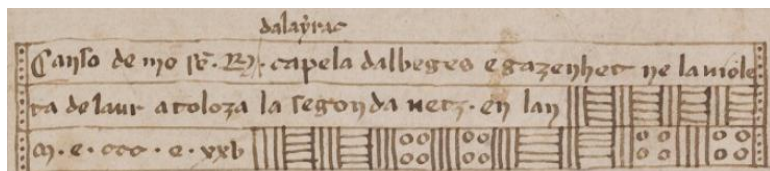 dalayrac
Canso de mo sẽ. R. capela dalbeges e gazenhet ne la uiole
ta de laur a toloza la segonda uetz. en lan
m. e. ccc. e. xxv